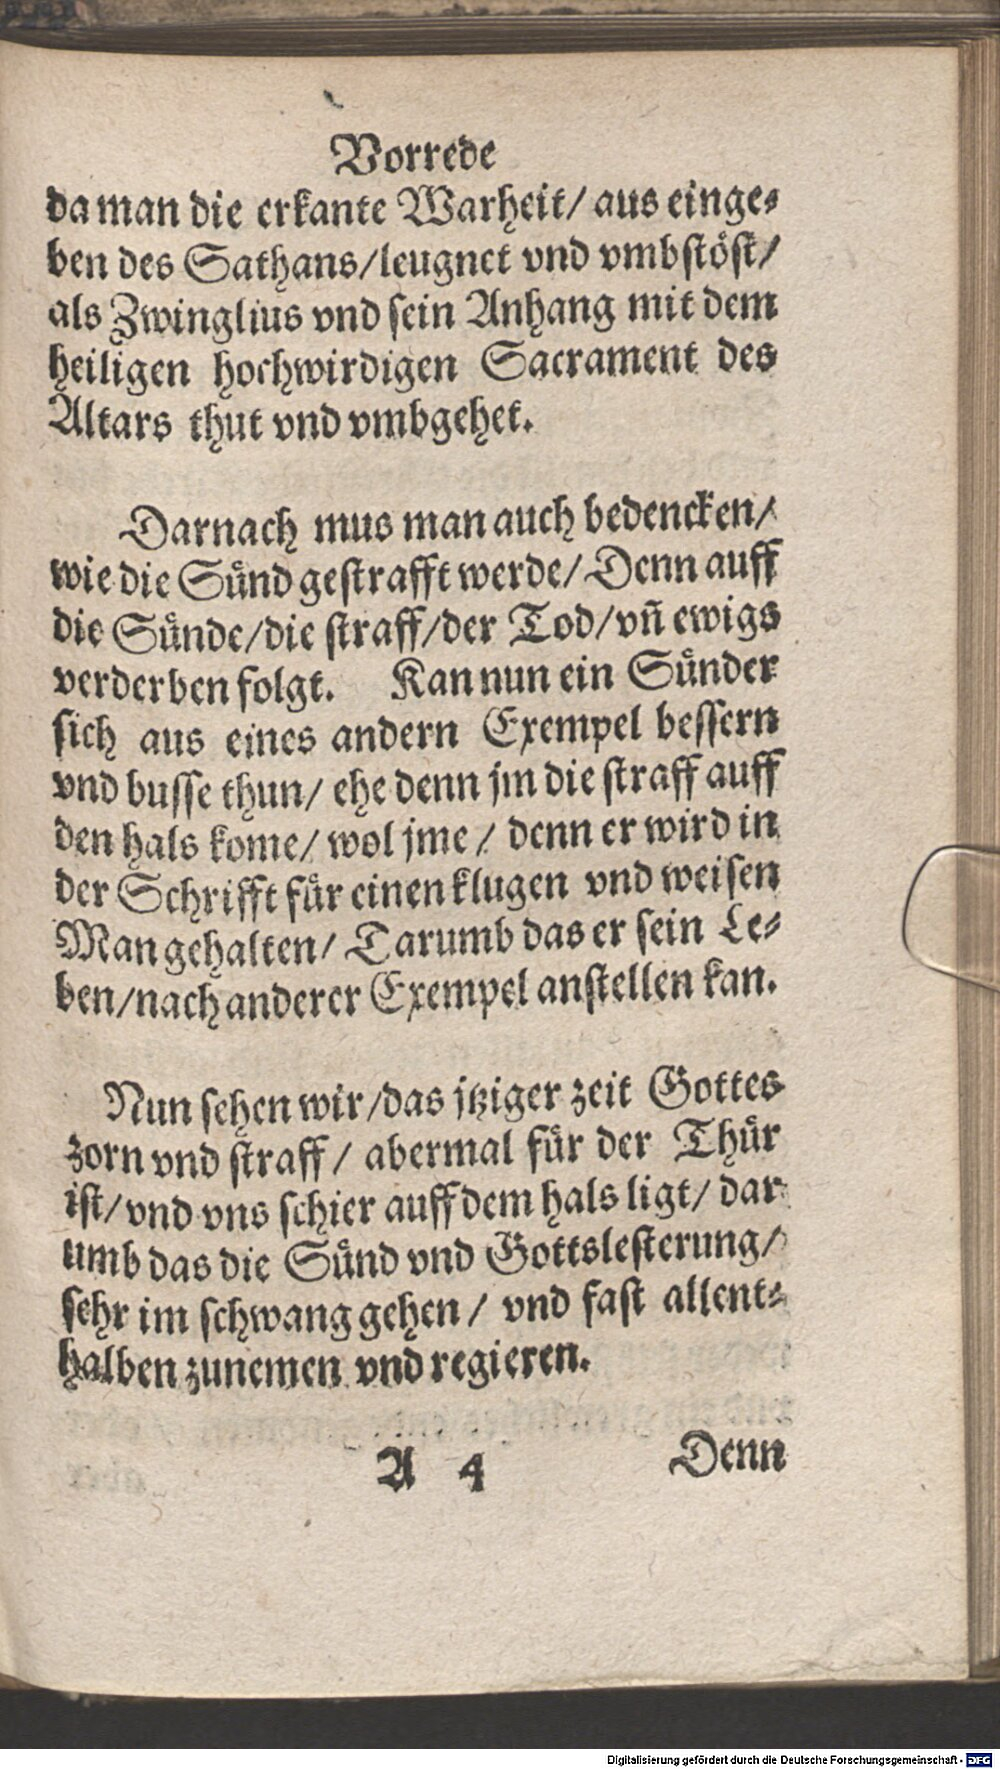 Vorrede
da man die erkante Warheit/ aus einge⸗
ben des Sathans/leugnet vnd vmbstöst/
als Zwinglius vnd sein Anhang mit dem
heiligen hochwirdigen Sacrament des
Altars thut vnd vmbgehet.
Darnach mus man auch bedencken/
wie die Sünd gestrafft werde/ Denn auff
die Sünde/die straff/der Tod/vñ ewigs
verderben folgt. Kan nun ein Sünder
sich aus eines andern Exempel bessern
vnd busse thun/ ehe denn jm die straff auff
den hals kome/ wol jme/ denn er wird in
der Schrifft für einen klugen vnd weisen
Man gehalten/ Tarumb das er sein Le⸗
ben/nach anderer Exempel anstellen kan.
Nun sehen wir/das jtziger zeit Gottes
zorn vnd straff/ abermal für der Thür
ist/vnd vns schier auff dem hals ligt/ dar
umb das die Sünd vnd Gottslesterung/
sehr im schwang gehen/ vnd fast allent⸗
halben zunemen vnd regieren.
A 4 Denn
Digitalisierung gefördert durch die Deutsche Forschungsgemeinschaft - DFG